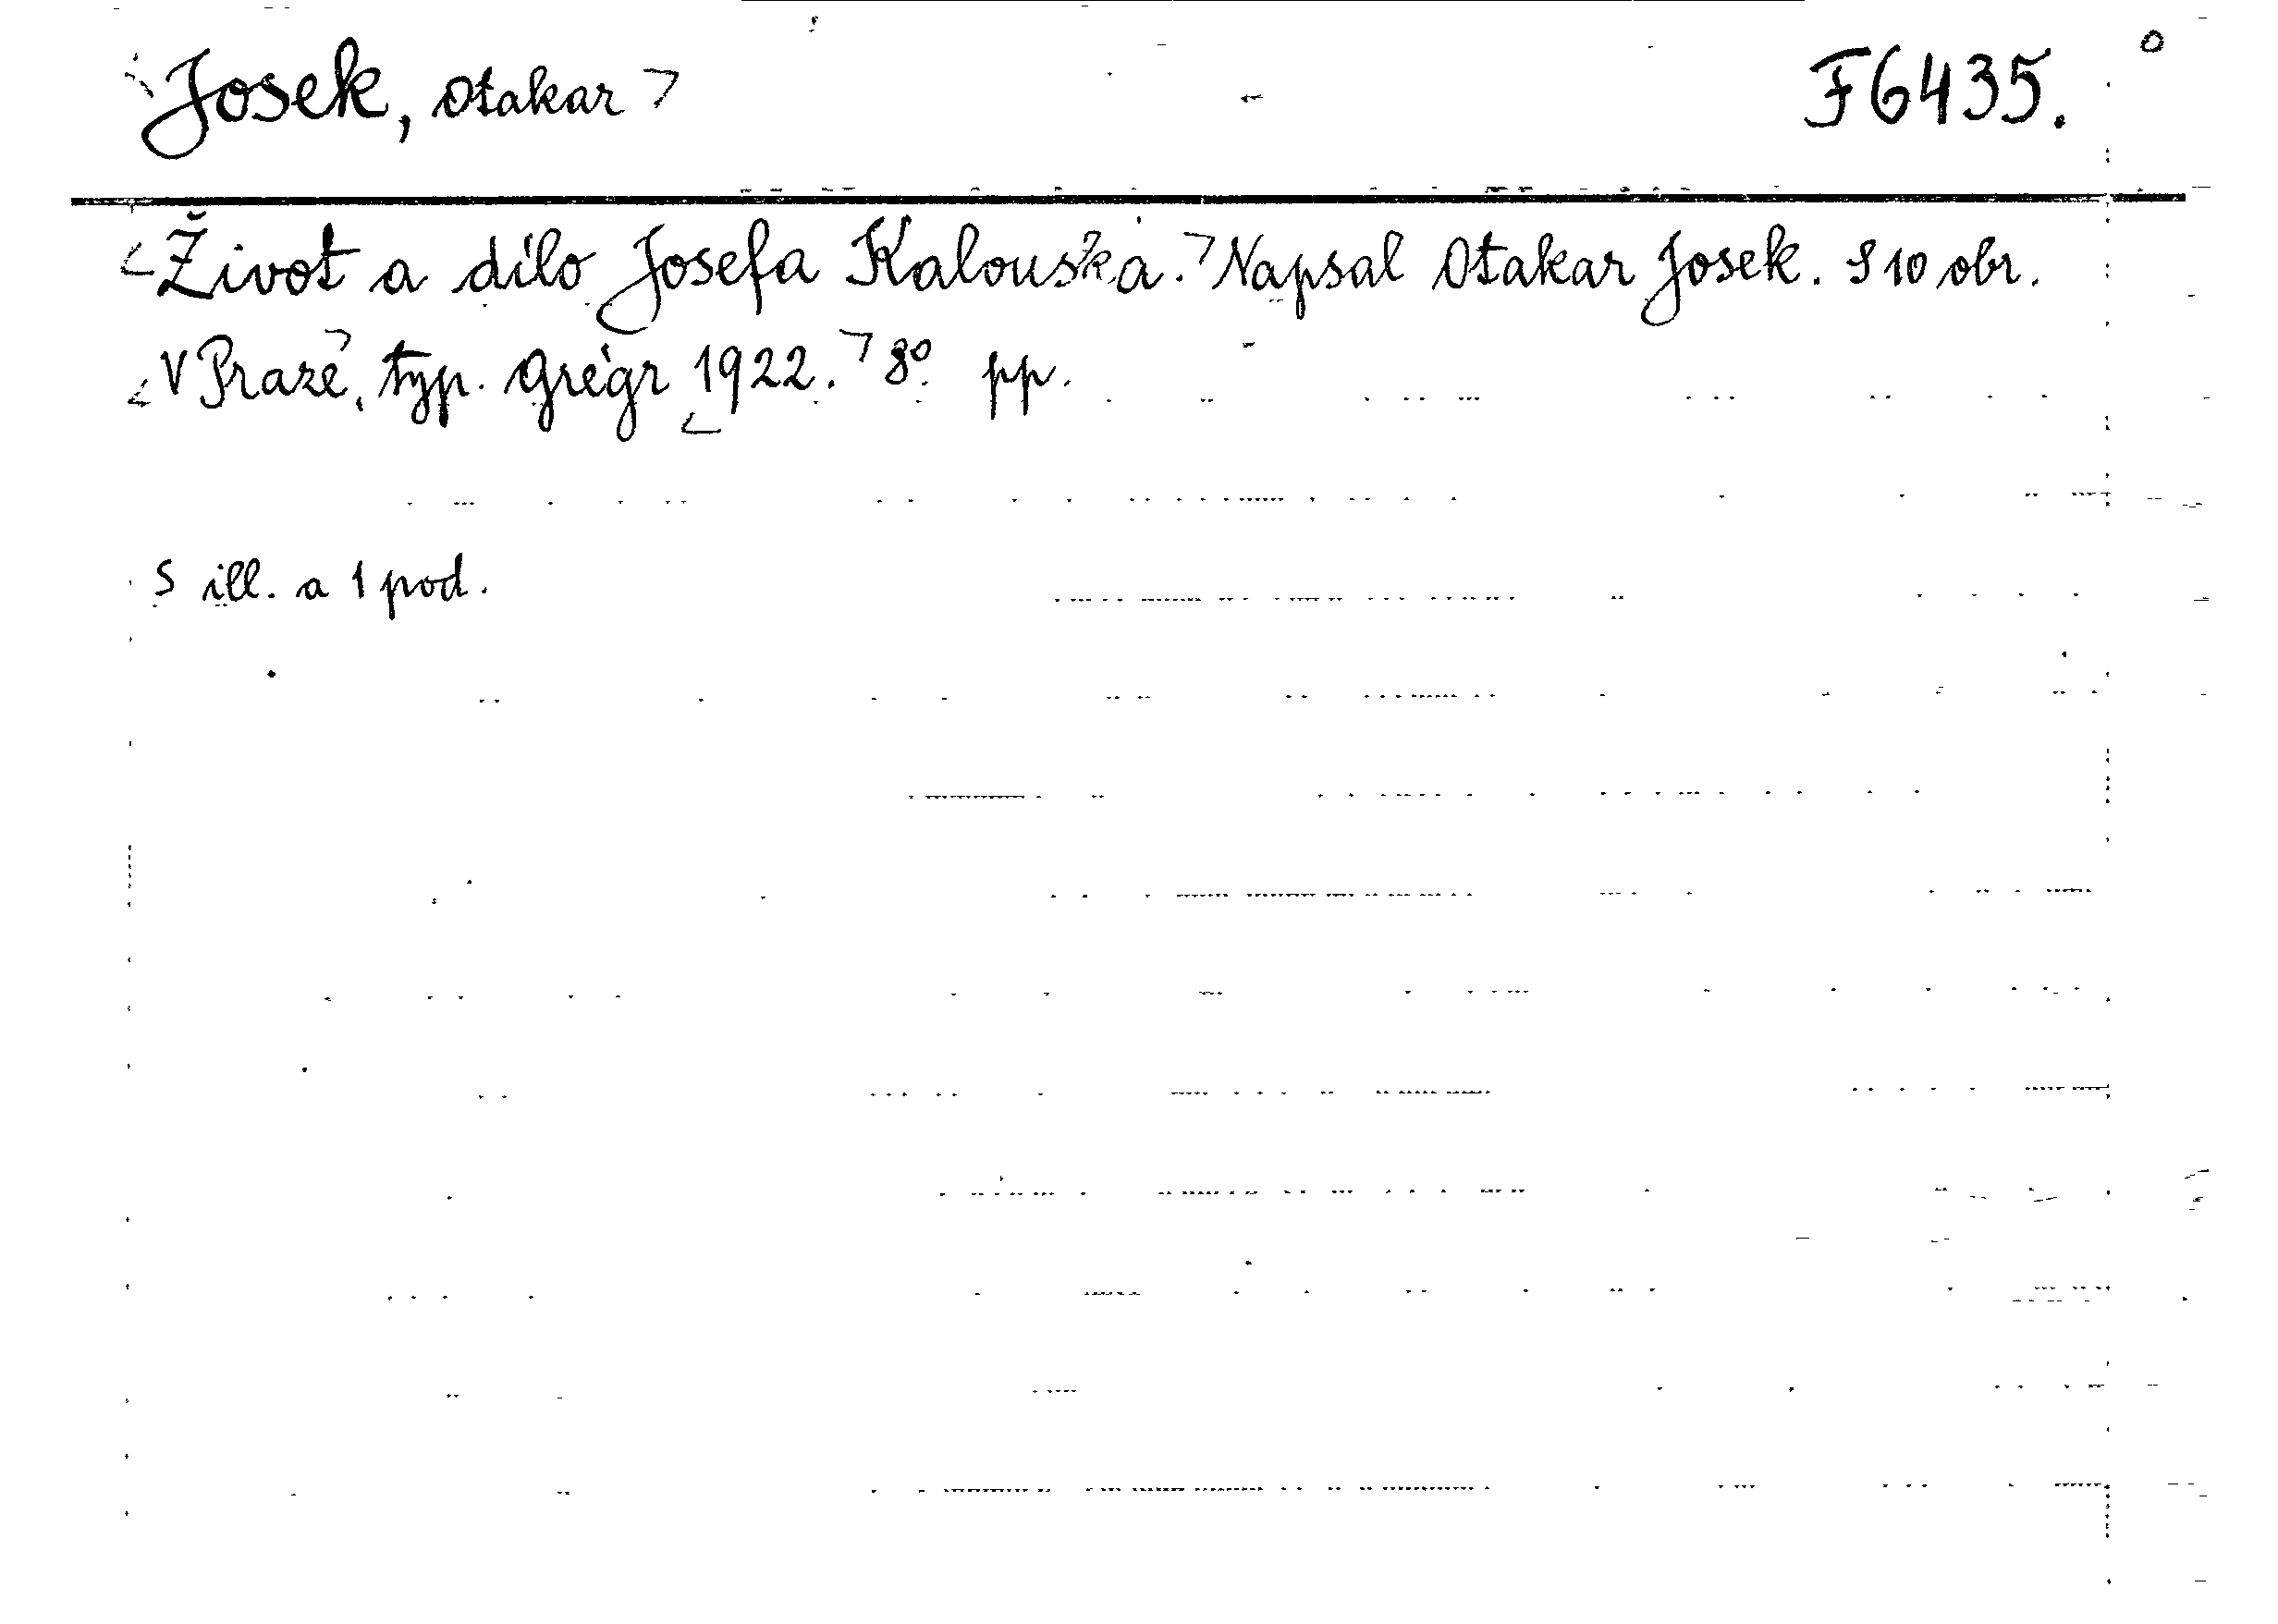 Josek, Otakar F6435.
Život a dílo Josefa Kalouska. Napsal Otakar Josek. S 10 obr.
V Praze, typ. Grégr 1922. 8° pp.
S ill. a 1 pod.